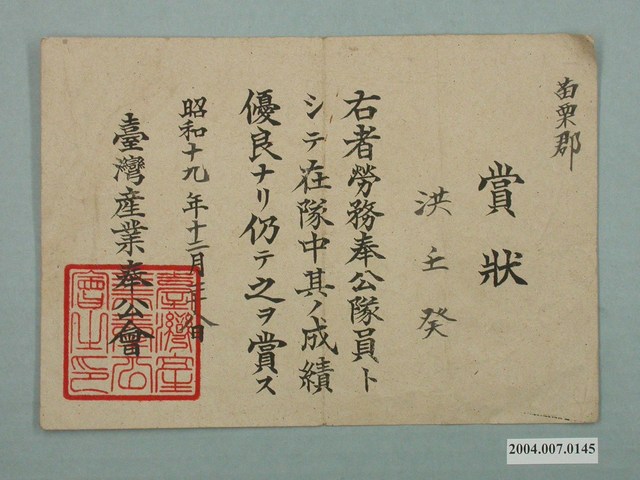 苗栗郡
賞狀
洪壬癸
右者勞務奉公隊員ト
シテ在隊中其ノ成績
優良ナリ仍テ之ヲ賞ス
昭和十九年十二月廿八日
臺灣產業奉公會
臺灣產
業奉公
會之印
2004.007.0145